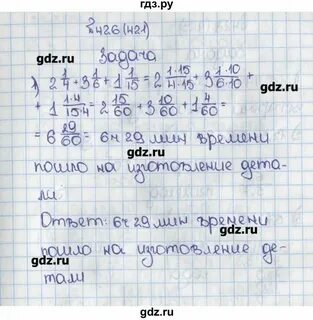 gdz.ru
№426 (421)
gdz.ru gdz.ru
Задача
1) 2 1/4 + 3 1/6 + 1 1/15 = 2 1·15/4·15 + 3 1·10/6·10 +
+ 1 1·4/15·4 = 2 15/60 + 3 10/60 + 1 4/60 =
= 6 29/60 = 6ч 29 мин времени
пошло на изготовление дета-
ли
gdz.ru gdz.ru
Ответ: 6ч 29 мин времени
пошло на изготовление де-
тали
gdz.ru gdz.ru